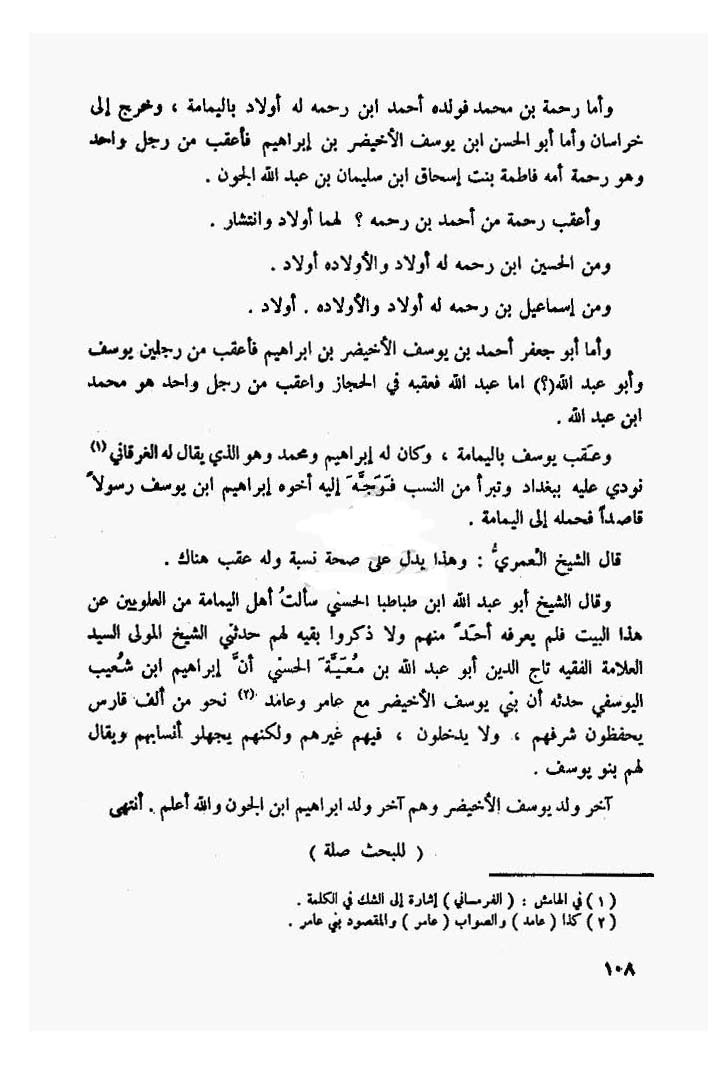 وأما رحمة بن محمد فولده أحمد ابن رحمه له أولاد باليمامة ، وخرج إلى
خراسان وأما أبو الحسن ابن يوسف الأخيضر بن إبراهيم فأعقب من رجل واحد
وهو رحمة أمه فاطمة بنت إسحاق ابن سليمان بن عبد الله الجون .
وأعقب رحمة من أحمد بن رحمه ؟ لهما أولاد وانتشار .
ومن الحسين ابن رحمه له أولاد والأولاده أولاد .
ومن إسماعيل بن رحمه له أولاد والأولاده . أولاد .
وأما أبو جعفر أحمد بن يوسف الأخيضر بن ابراهيم فأعقب من رجلين يوسف
وأبو عبد الله(؟) اما عبد الله فعقبه في الحجاز واعقب من رجل واحد هو محمد
ابن عبد الله .
وعَقب يوسف باليمامة ، وكان له إبراهيم ومحمد وهو الذي يقال له الغرقاني (١)
نودي عليه ببغداد وتبرأ من النسب فَوَجَّهَ إليه أخوه إبراهيم ابن يوسف رسولاً
قاصداً فحمله إلى اليمامة .
قال الشيخ العمريُّ : وهذا يدل على صحة نسبة وله عقب هناك .
وقال الشيخ أبو عبد الله ابن طباطبا الحسني سألتُ أهل اليمامة من العلويين عن
هذا البيت فلم يعرفه أحَدٌ منهم ولا ذكروا بقيه لهم حدثني الشيخ المولى السيد
العلامة الفقيه تاج الدين أبو عبد الله بن مُعَيَّةَ الحسني أنَّ إبراهيم ابن شُعيب
اليوسفي حدثه أن بني يوسف الأخيضر مع عامر وعامد (٢) نحو من ألف فارس
يحفظون شرفهم ، ولا يدخلون ، فيهم غيرهم ولكنهم يجهلو أنسابهم ويقال
لهم بنو يوسف .
آخر ولد يوسف الأخيضر وهم آخر ولد ابراهيم ابن الجون والله أعلم . أنتهى
( للبحث صلة )
( ١ ) في الهامش : ( الفرمساني ) إشارة إلى الشك في الكلمة .
( ٢ ) كذا ( عامد ) والصواب ( عامر ) والمقصود بني عامر .
١٠٨